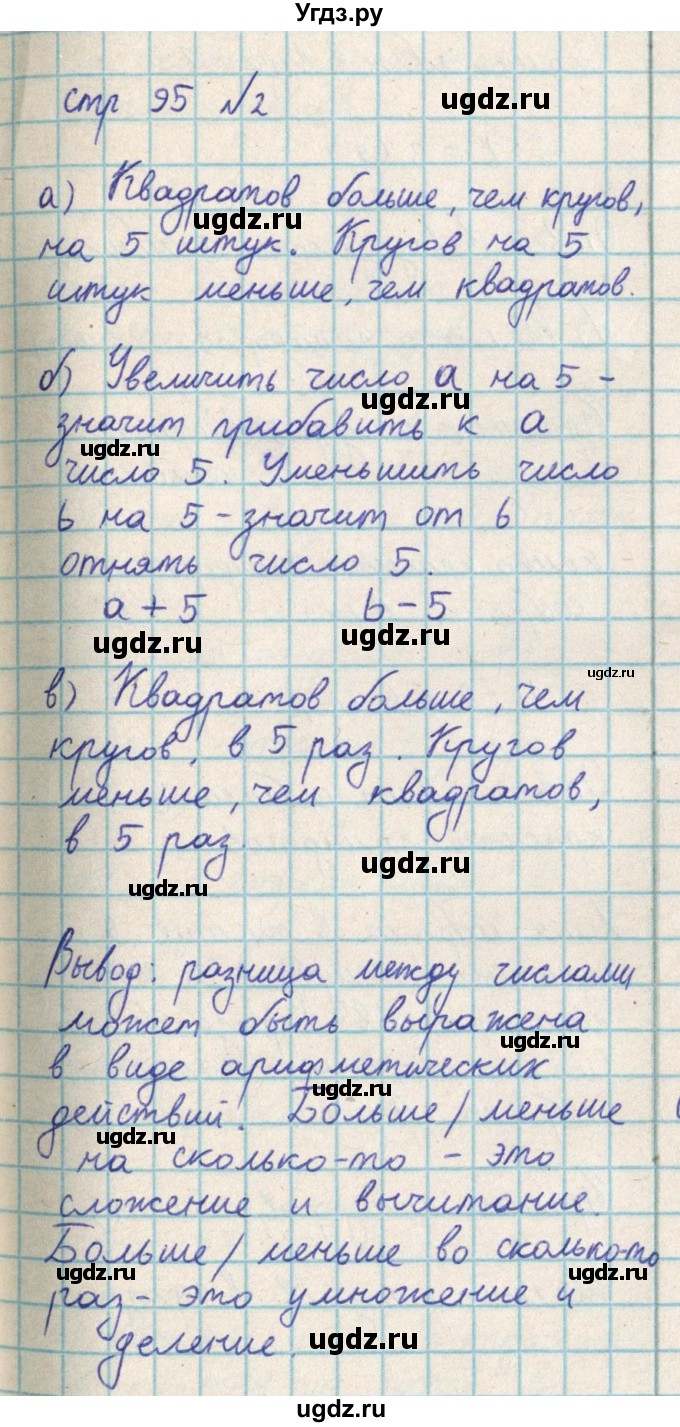 Угдз.ру
стр 95 №2
ugdz.ru
а) Квадратов больше, чем кругов,
ugdz.ru
на 5 штук. Кругов на 5
штук меньше, чем квадратов.
б) Увеличить число a на 5 -
ugdz.ru
значит прибавить к a
ugdz.ru
число 5. Уменьшить число
b на 5 - значит от b
отнять число 5.
a + 5 b - 5
ugdz.ru ugdz.ru
ugdz.ru
в) Квадратов больше, чем
кругов, в 5 раз. Кругов
меньше, чем квадратов,
в 5 раз.
ugdz.ru
ugdz.ru
Вывод: разница между числами
может быть выражена
ugdz.ru
в виде арифметических
ugdz.ru
действий. Больше/меньше
ugdz.ru
на сколько-то - это
сложение и вычитание.
Больше/меньше во сколько-то
ugdz.ru ugdz.ru
раз - это умножение и
деление.
ugdz.ru
ugdz.ru